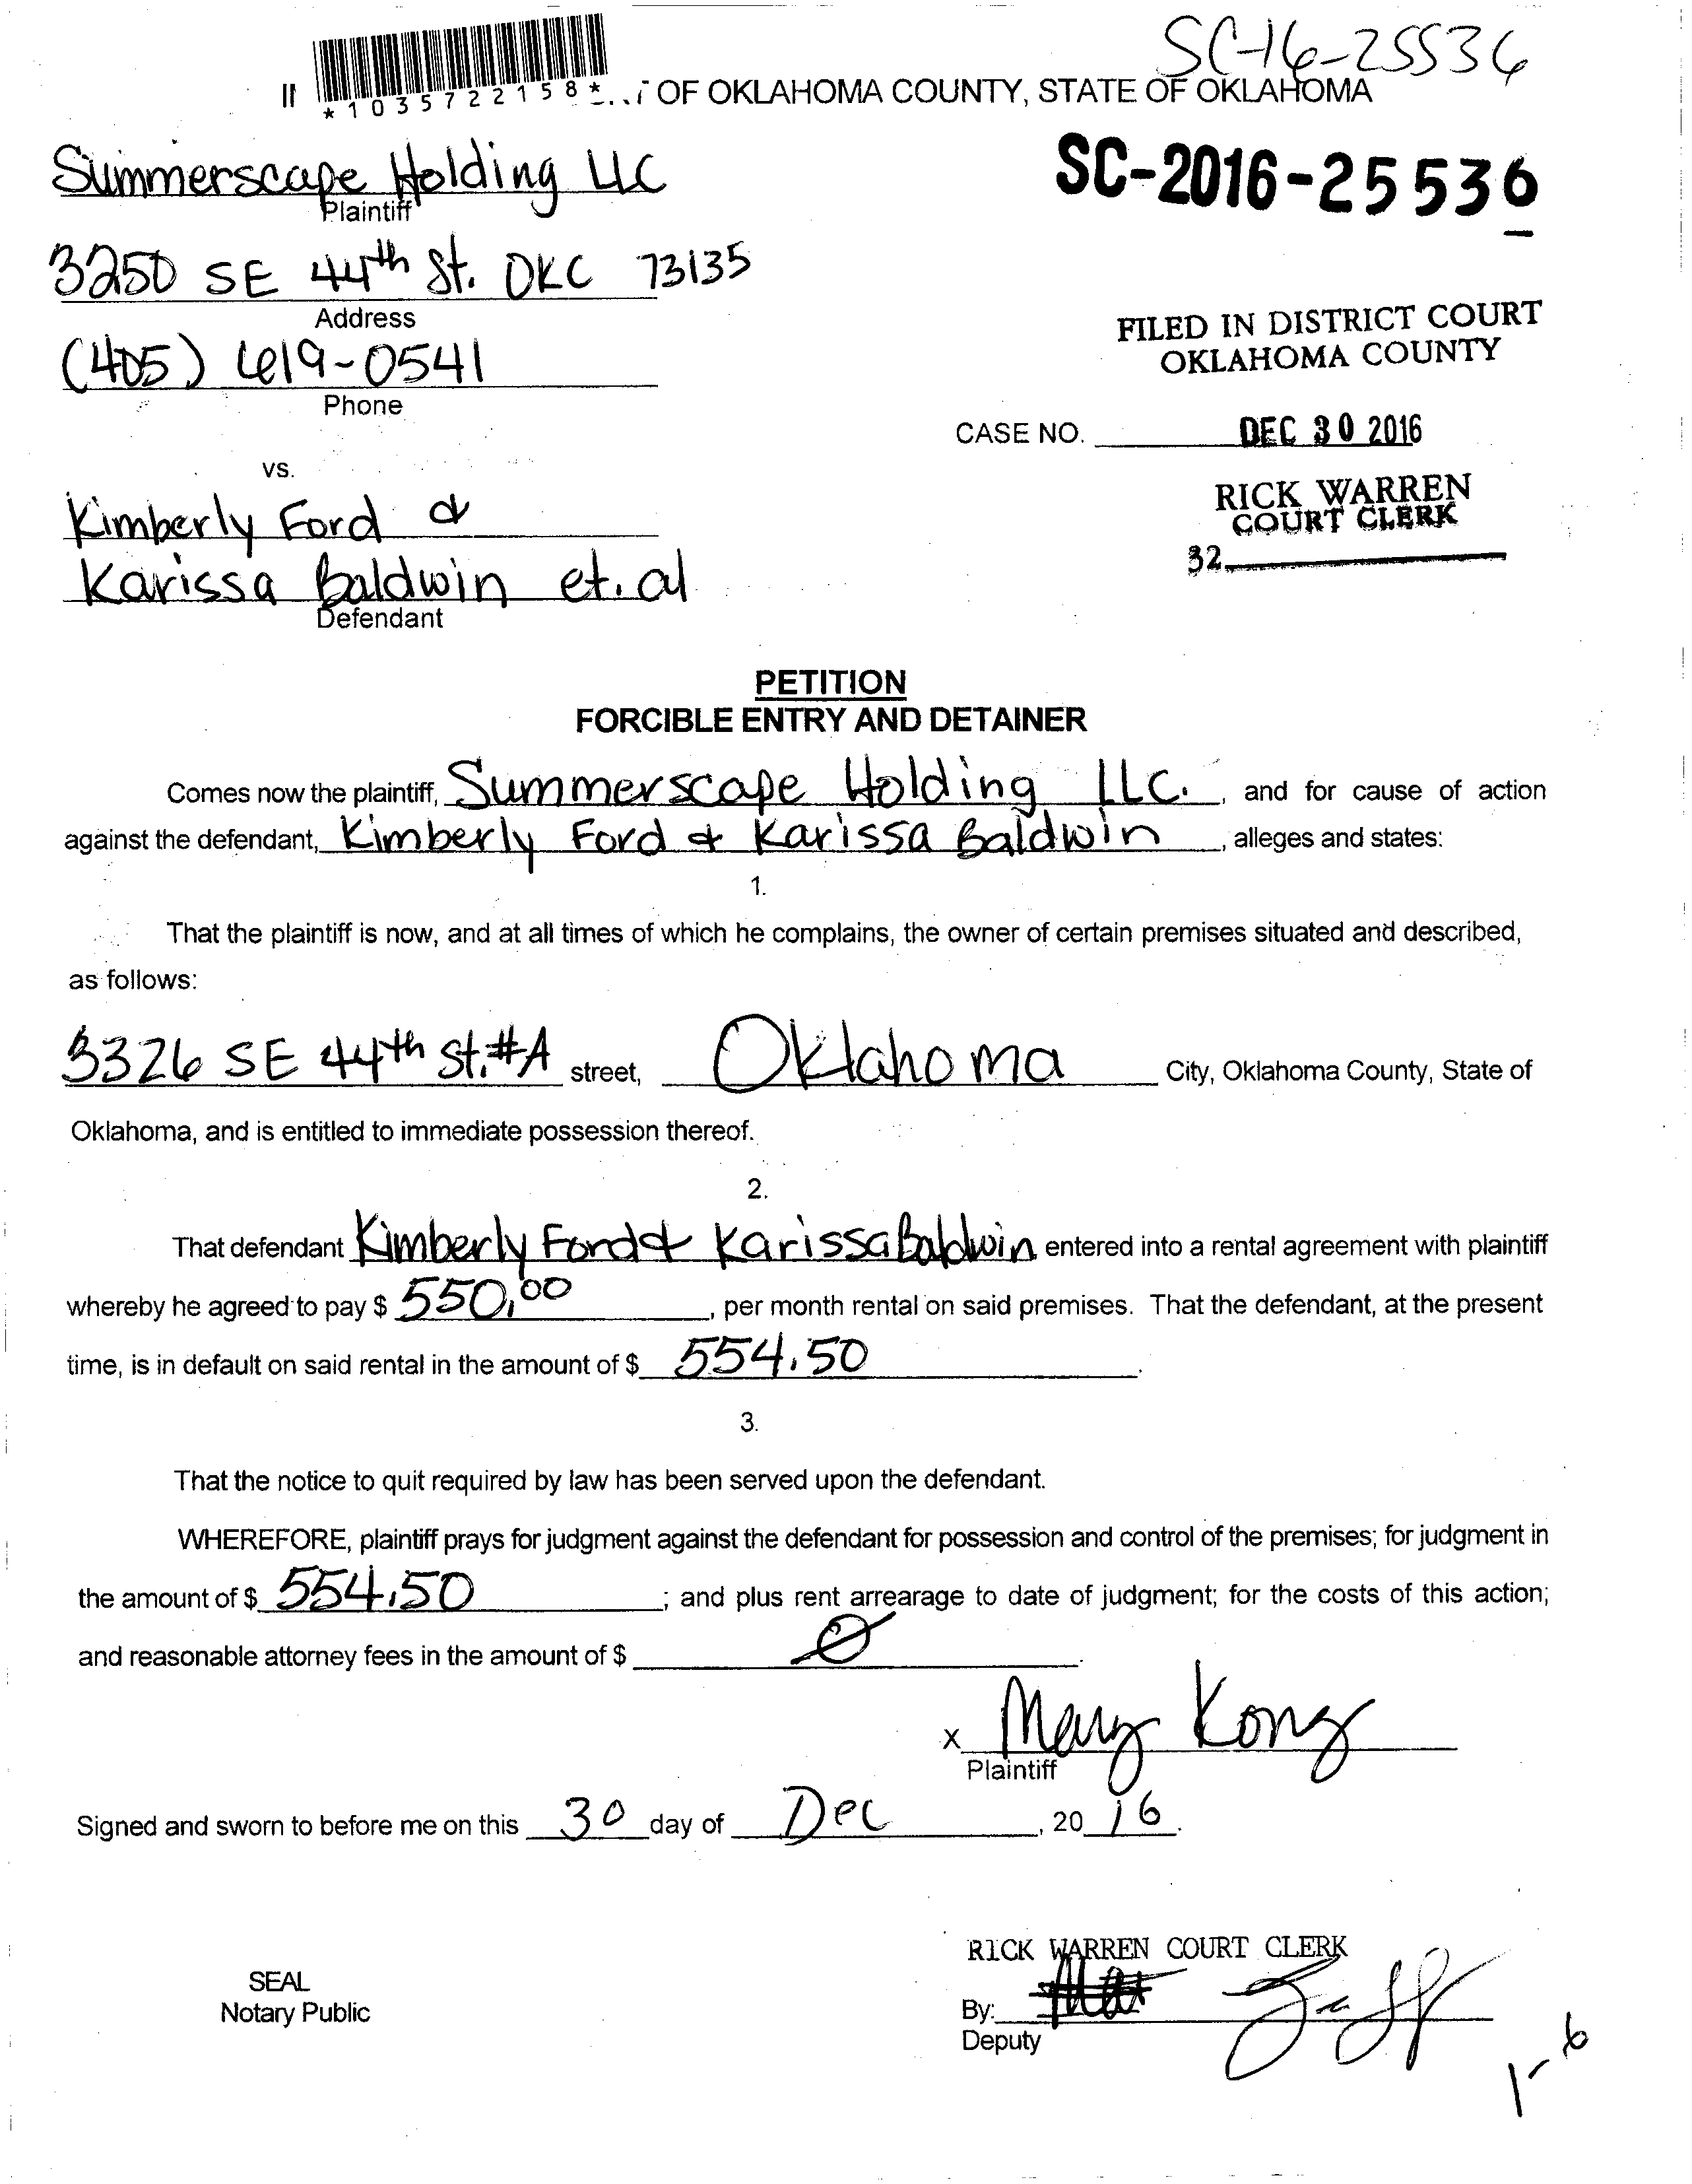 SC-16-25536
*1035722158*
OF OKLAHOMA COUNTY, STATE OF OKLAHOMA
Summerscape Holding LLC
Plaintiff
SC-2016-25536
3250 SE 44th St. OKC 73135
Address
FILED IN DISTRICT COURT
OKLAHOMA COUNTY
(405) 619-0541
Phone
CASE NO. DEC 30 2016
vs.
RICK WARREN
COURT CLERK
32
Kimberly Ford &
Karissa Baldwin et. al
Defendant
PETITION
FORCIBLE ENTRY AND DETAINER
Comes now the plaintiff, Summerscape Holding LLC. , and for cause of action
against the defendant, Kimberly Ford & Karissa Baldwin , alleges and states:
1.
That the plaintiff is now, and at all times of which he complains, the owner of certain premises situated and described,
as follows:
3326 SE 44th St. #A street, Oklahoma City, Oklahoma County, State of
Oklahoma, and is entitled to immediate possession thereof.
2.
That defendant Kimberly Ford & Karissa Baldwin entered into a rental agreement with plaintiff
whereby he agreed to pay $ 550.00 , per month rental on said premises. That the defendant, at the present
time, is in default on said rental in the amount of $ 554.50 .
3.
That the notice to quit required by law has been served upon the defendant.
WHEREFORE, plaintiff prays for judgment against the defendant for possession and control of the premises; for judgment in
the amount of $ 554.50 ; and plus rent arrearage to date of judgment; for the costs of this action;
and reasonable attorney fees in the amount of $ 0 .
x Mary Kong
Plaintiff
Signed and sworn to before me on this 30 day of Dec , 20 16 .
RICK WARREN COURT CLERK
SEAL
Notary Public
By:
Deputy
1-6